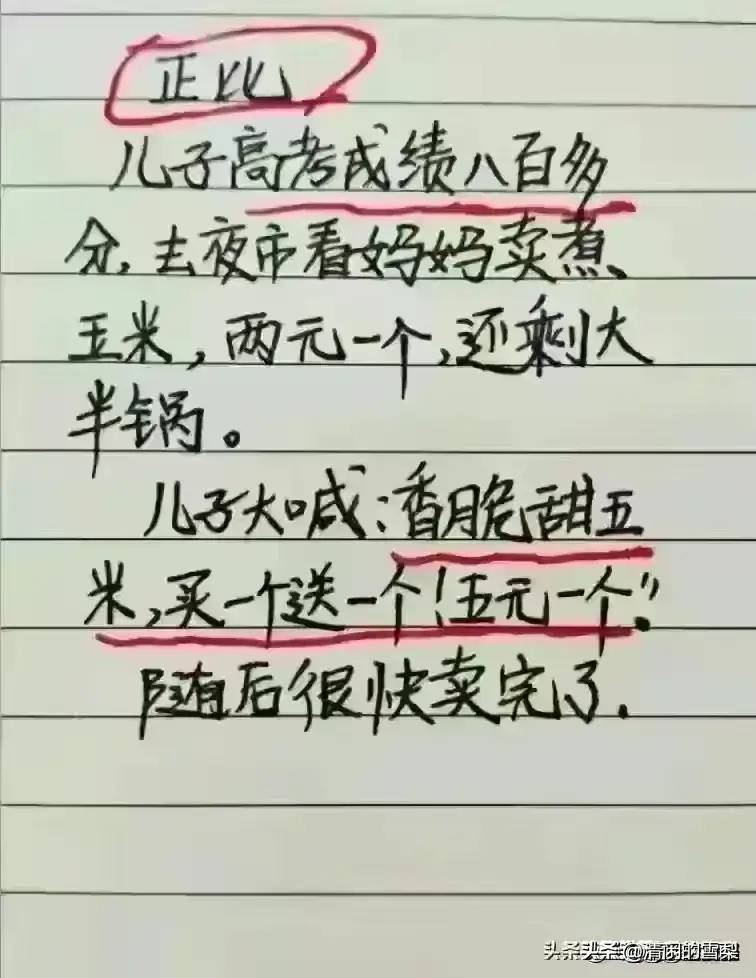 正比
儿子高考成绩八百多
分,去夜市看妈妈卖煮
玉米,两元一个,还剩大
半锅。
儿子大喊:香脆甜玉
米,买一个送一个!五元一个!”
随后很快卖完了.
头条 @清羽的雪梨